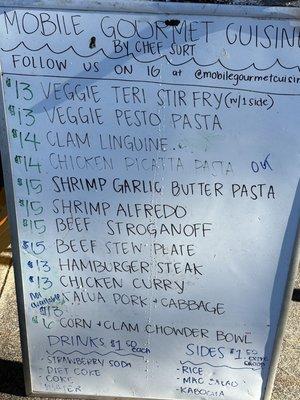 MOBILE GOURMET CUISINE
BY CHEF SURT
FOLLOW US ON IG at @mobilegourmetcuisi
$13 VEGGIE TERI STIR FRY (w/1 side)
$13 VEGGIE PESTO PASTA
$14 CLAM LINGUINE
$14 CHICKEN PICATTA PASTA OUT
$15 SHRIMP GARLIC BUTTER PASTA
$15 SHRIMP ALFREDO
$15 BEEF STROGANOFF
$15 BEEF STEW PLATE
$13 HAMBURGER STEAK
$13 CHICKEN CURRY
Not available KALUA PORK + CABBAGE
$13
$6 CORN + CLAM CHOWDER BOWL
DRINKS $1.50 each
- STRAWBERRY SODA
- DIET COKE
- COKE
- WATER
SIDES $1.50
- RICE
- MAC SALAD
- KABOCHA